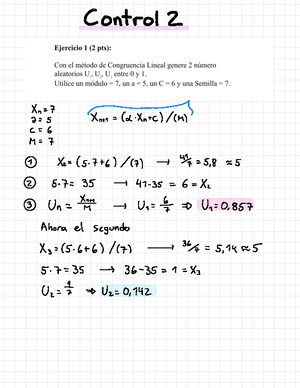 Control 2
Ejercicio 1 (2 pts):
Con el método de Congruencia Lineal genere 2 número
aleatorios U₁, U₂, U, entre 0 y 1.
Utilice un módulo = 7, un a = 5, un C = 6 y una Semilla = 7.
Xn = 7
a = 5
C = 6
M = 7
Xn+1 = (a · Xn + c) / (M)
① X₂ = (5·7+6) / (7) → 41/7 = 5,8 ≈ 5
② 5·7 = 35 → 41-35 = 6 = X₂
③ Un = Xn+1/M → U₁ = 6/7 ⇒ U₁ = 0,857
Ahora el segundo
X₃ = (5·6+6) / (7) → 36/7 = 5,14 ≈ 5
5·7 = 35 → 36-35 = 1 = X₃
U₂ = 1/7 ⇒ U₂ = 0,142